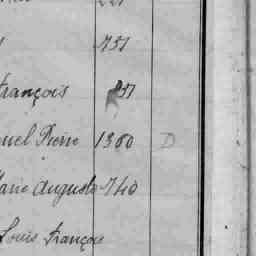 751
François 851
uel Pierre 1360 D
Marie Auguste 740
Louis François